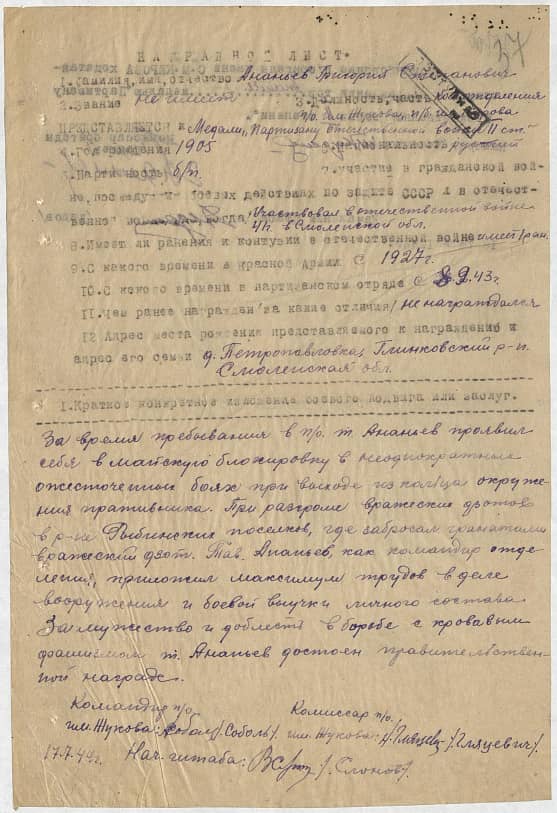 37
НАГРАДНОЙ ЛИСТ.
1. Фамилия, имя, отчество Ананьев Григорий Степанович
2. Звание не имеет 3. Должность, часть Ком. отделения
п/о им. Жукова, п/б. им.
ПРЕДСТАВЛЯЕТСЯ к Медали „Партизану Отечественной войны" II ст.
Год рождения 1905 русский
Партийность б/п. 7. Участие в гражданской вой-
не, последующих боевых действиях по защите СССР и в отечест-
венной войне когда, Участвовал в отечественной войне
41г. в Смоленской обл.
8. Имеет ли ранения и контузии в отечественной войне имеет 1 ран.
9. С какого времени в Красной Армии С 1927г.
10. С какого времени в партизанском отряде с 9.43г.
11. Чем ранее награжден /за какие отличия/ не награждался
12 Адрес места рождения представляемого к награждению и
адрес его семьи д. Петропавловка, Глинковский р-н.
Смоленская обл.
1. Краткое конкретное изложение боевого подвига или заслуг.
За время пребывания в п/о. т. Ананьев проявил
себя в майскую блокировку в неоднократных
ожесточенных боях при выходе из кольца окруже-
ния противника. При разгроме вражеских дзотов
в р-не Рыбинских поселков, где забросал гранатами
вражеский дзот. Тов. Ананьев, как командир отде-
ления, приложил максимум трудов в деле
вооружения и боевой выучки личного состава
За мужество и доблесть в борьбе с кровавым
фашизмом т. Ананьев достоен правительствен-
ной наград.
Командир п/о. Комиссар п/о.
им. Жукова: Соболь /Соболь/. им. Жукова: /Гляцевич/.
17.7.44г. Нач. штаба: /Слонов/.